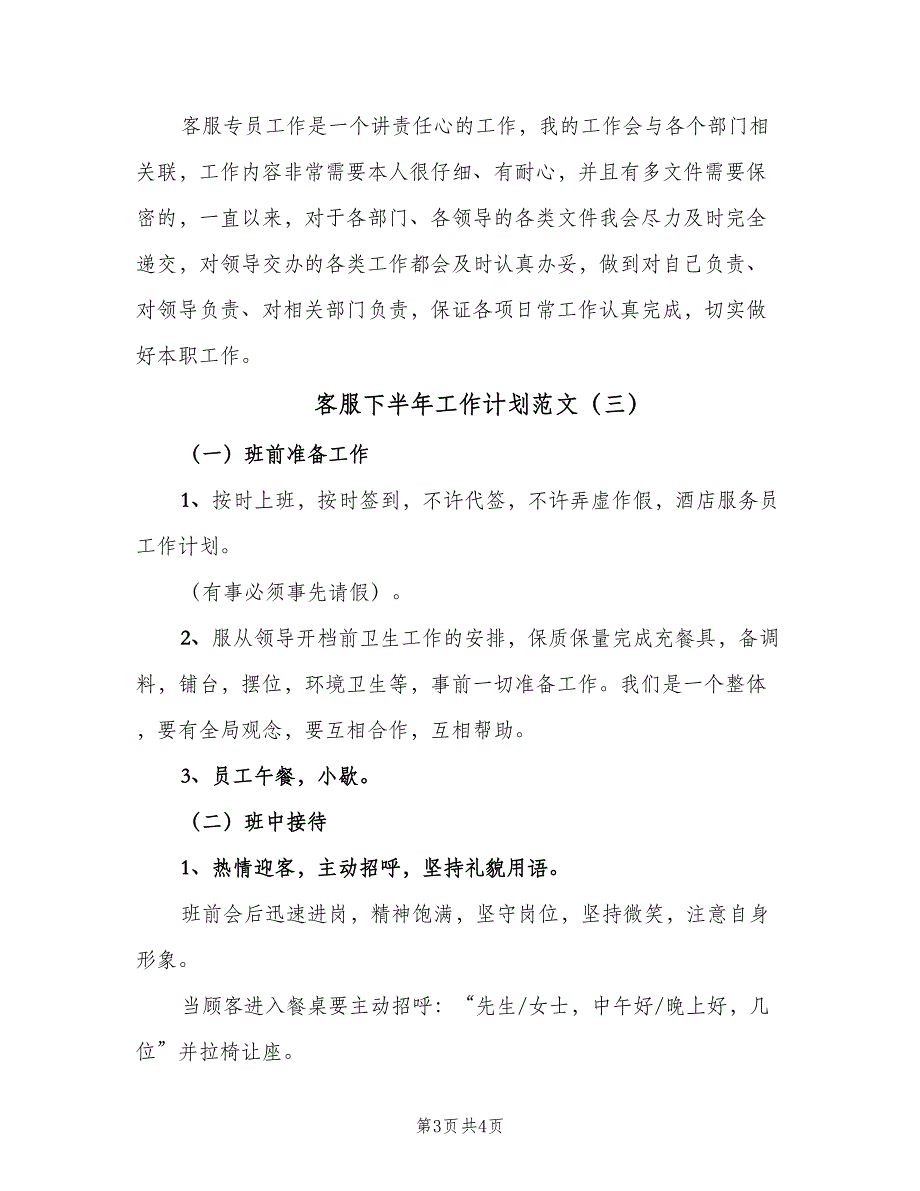 客服专员工作是一个讲责任心的工作，我的工作会与各个部门相
关联，工作内容非常需要本人很仔细、有耐心，并且有多文件需要保
密的，一直以来，对于各部门、各领导的各类文件我会尽力及时完全
递交，对领导交办的各类工作都会及时认真办妥，做到对自己负责、
对领导负责、对相关部门负责，保证各项日常工作认真完成，切实做
好本职工作。
客服下半年工作计划范文（三）
（一）班前准备工作
1、按时上班，按时签到，不许代签，不许弄虚作假，酒店服务员
工作计划。
（有事必须事先请假）。
2、服从领导开档前卫生工作的安排，保质保量完成充餐具，备调
料，铺台，摆位，环境卫生等，事前一切准备工作。我们是一个整体
，要有全局观念，要互相合作，互相帮助。
3、员工午餐，小歇。
（二）班中接待
1、热情迎客，主动招呼，坚持礼貌用语。
班前会后迅速进岗，精神饱满，坚守岗位，坚持微笑，注意自身
形象。
当顾客进入餐桌要主动招呼：“先生/女士，中午好/晚上好，几
位”并拉椅让座。
第3页共4页